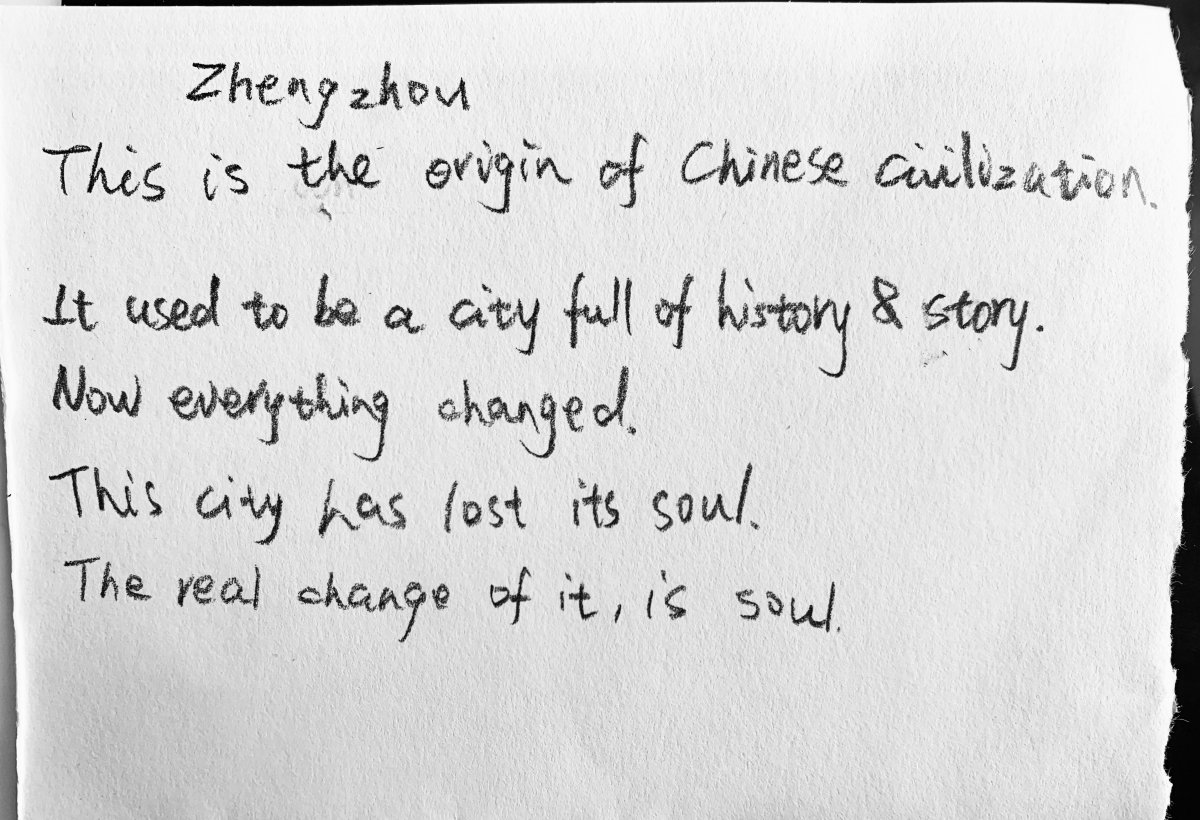 Zhengzhou
This is the origin of Chinese Civilization.
It used to be a city full of history & story.
Now everything changed.
This city has lost its soul.
The real change of it, is soul.